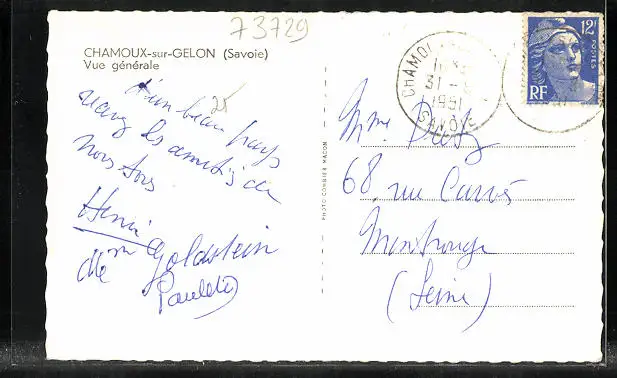 73729
CHAMOUX-sur-GELON (Savoie)
Vue générale
25
D'un beau pays
recevez les amitiés de
nous tous
Henri Goldstein
Paulette
PHOTO COMBIER MACON
CHAMOU
31
1951
SAVOIE
12F
POSTES
RF
Mme
68, rue Carvès
Montrouge
(Seine)